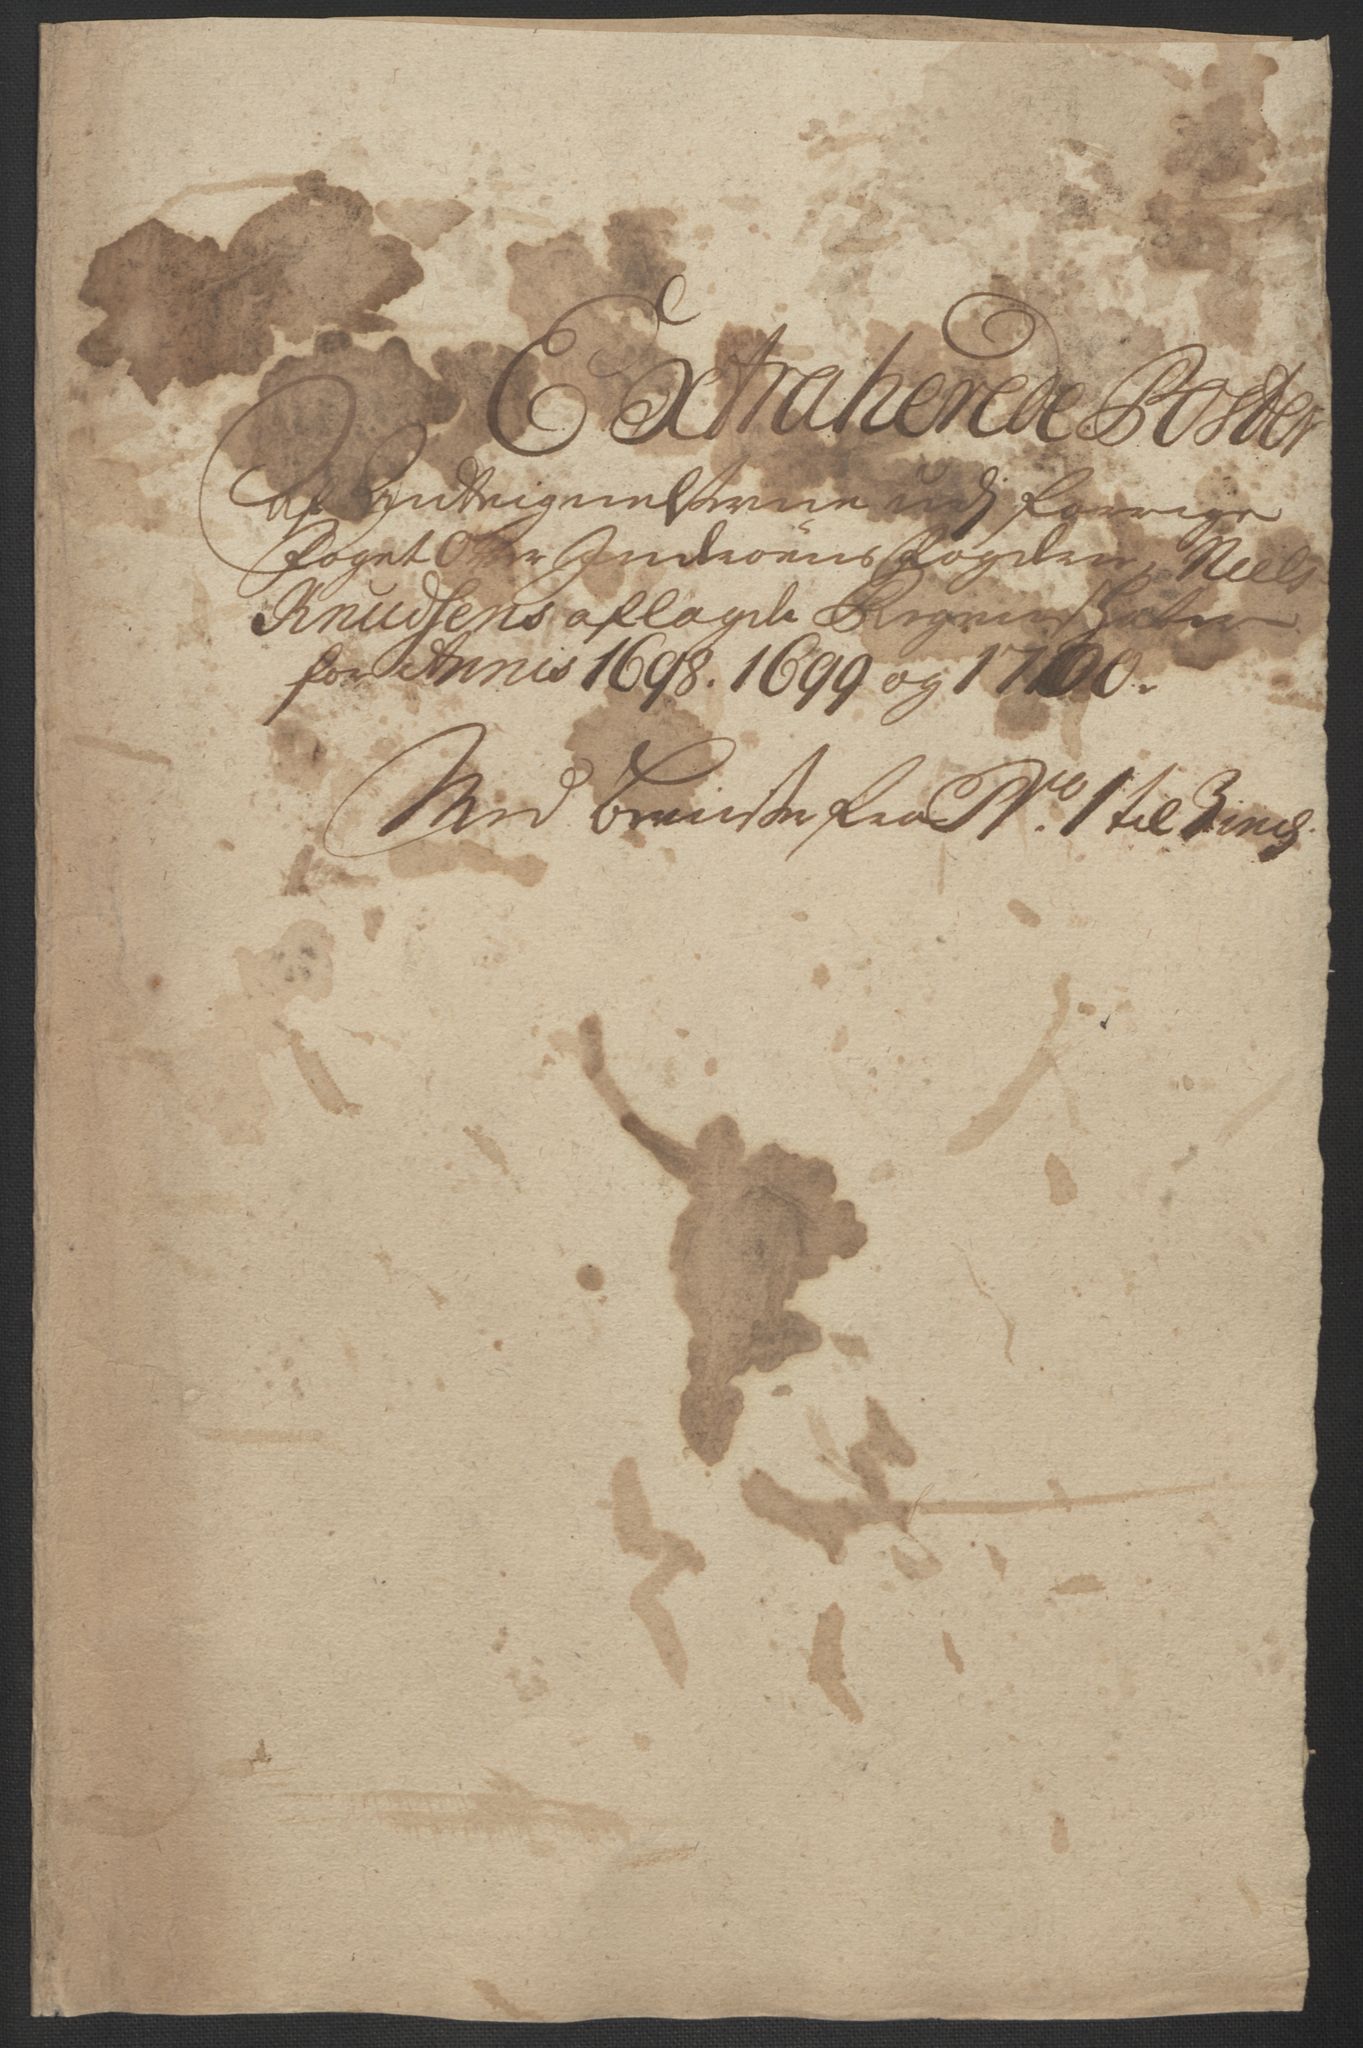 Extraherede Poster
Af Anteignelserne udj forrige
foget Ofver Inderöens fogderi, Niels
Knudsens aflagde Regenschaber
for Annis 1698. 1699 og 1700.
Med beviiser fra No. 1 til 3 incl.